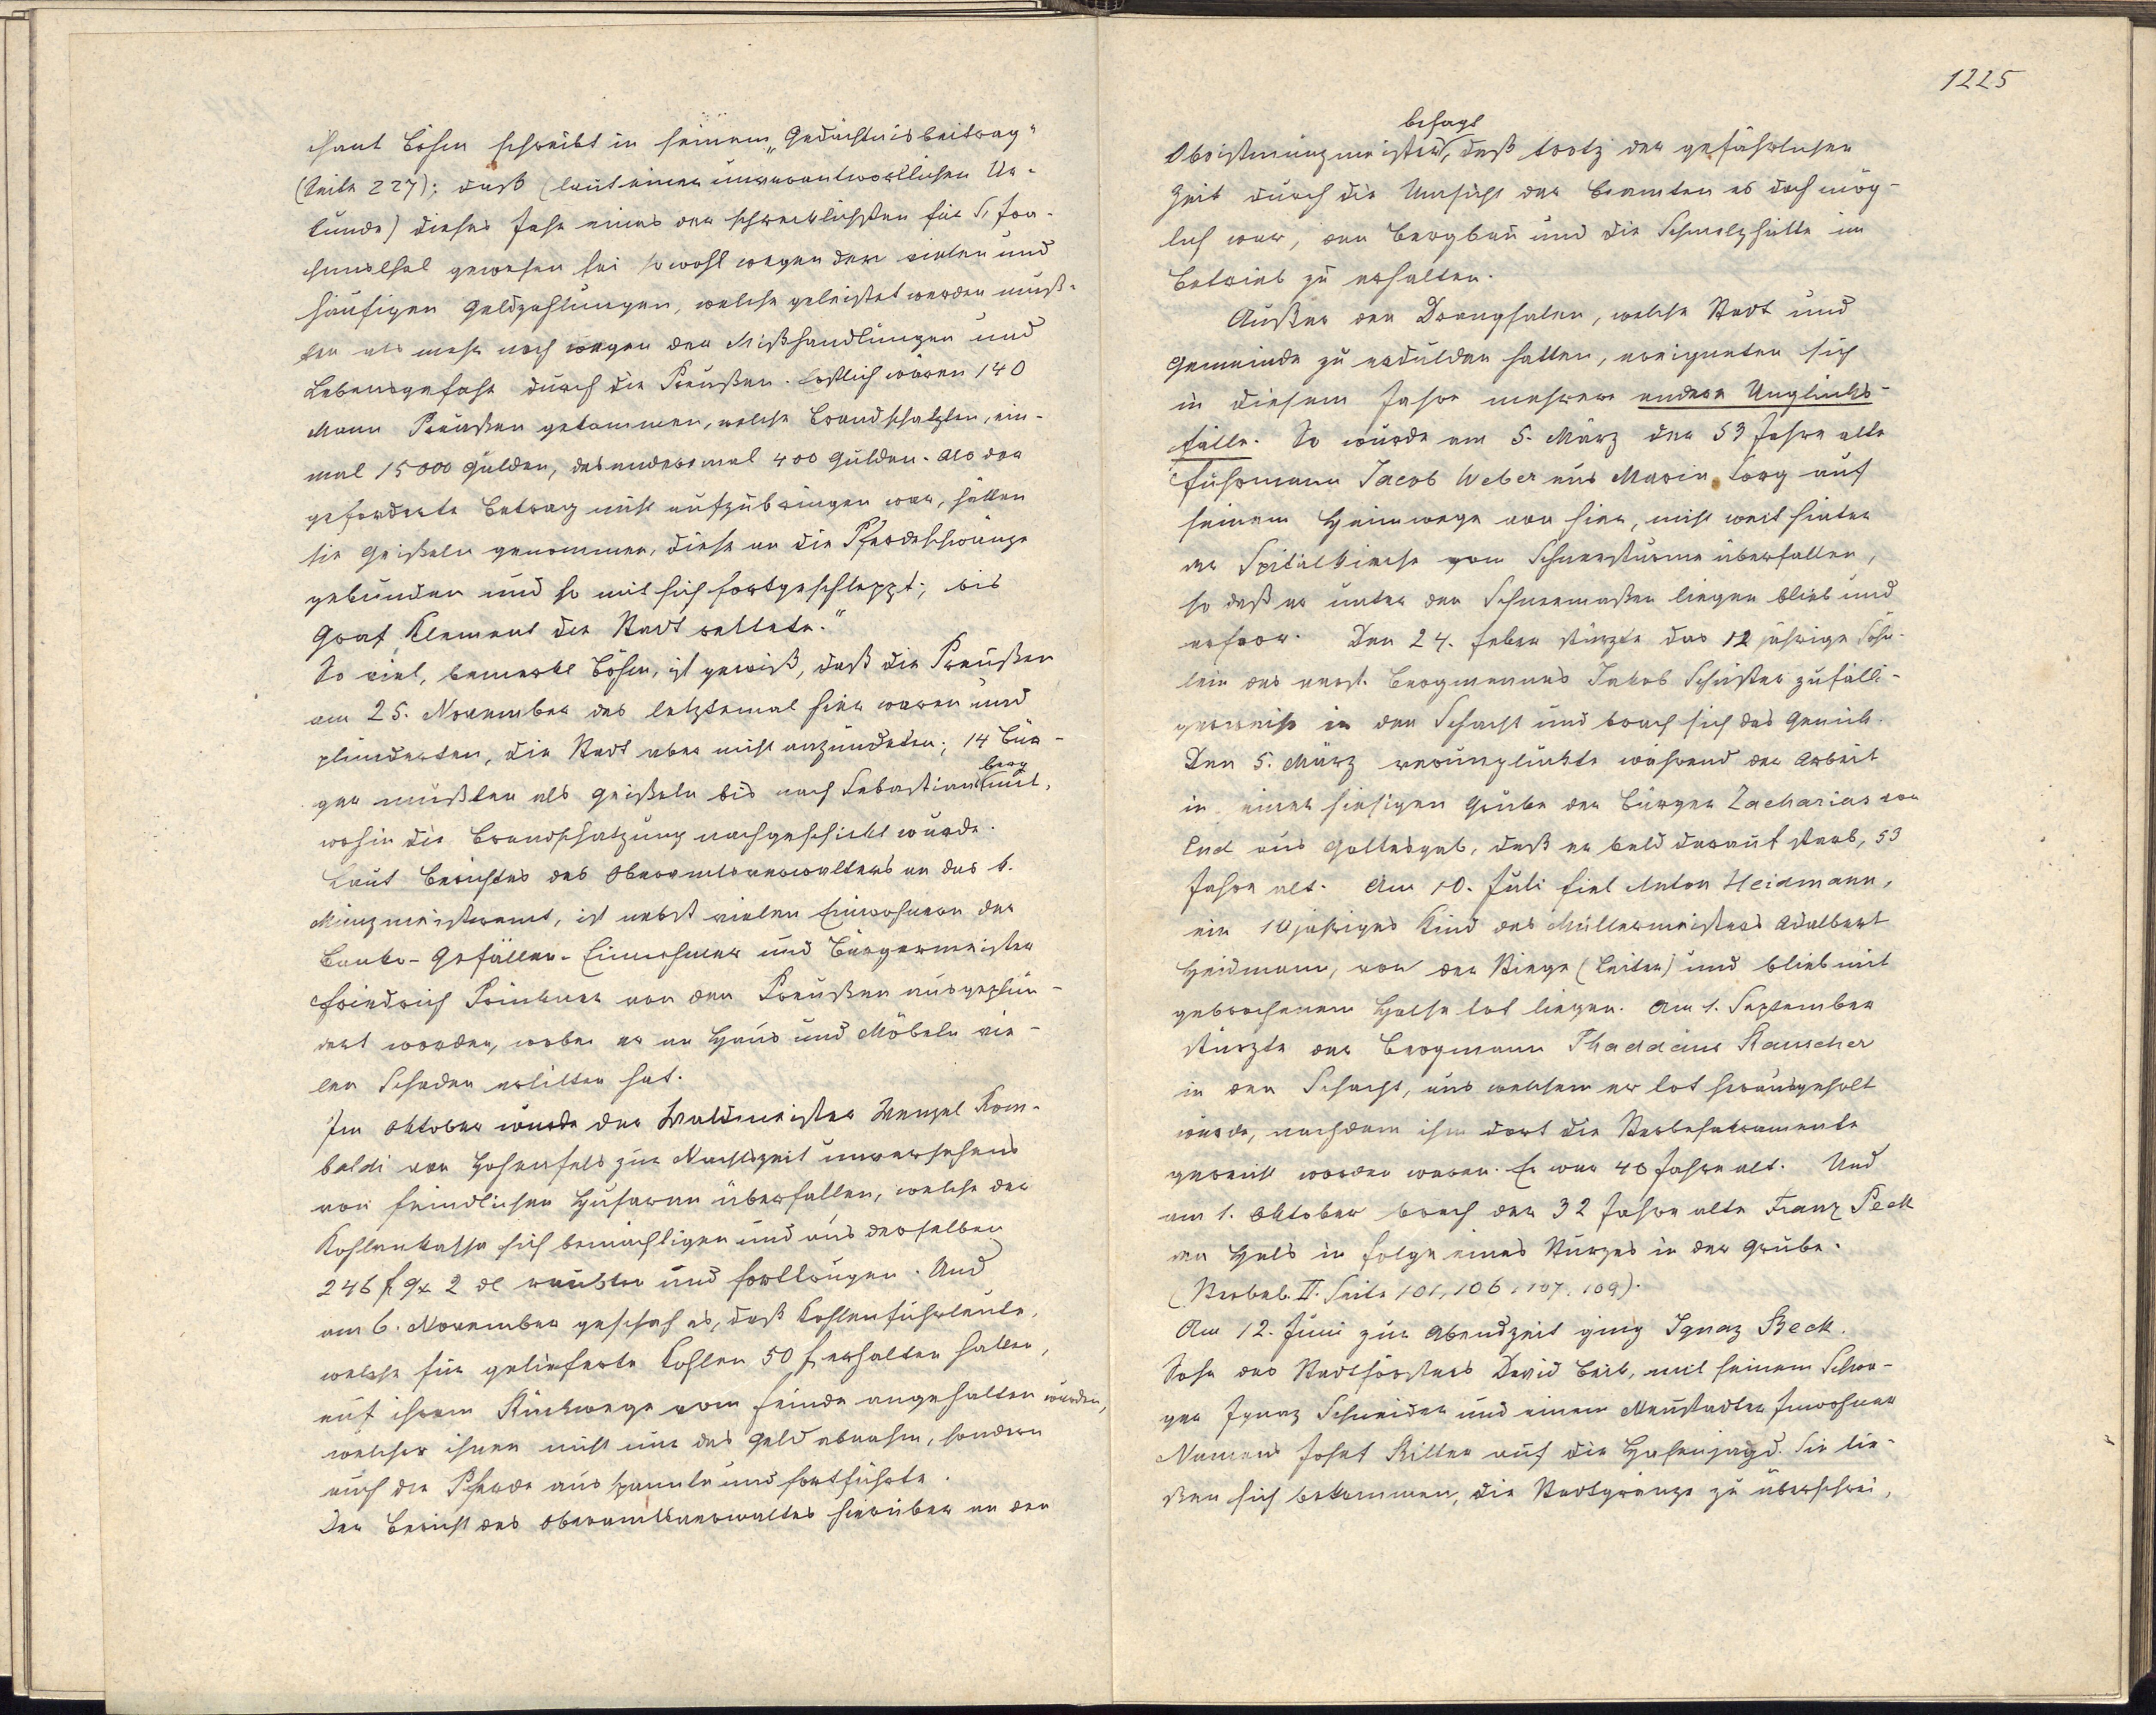 chant Böhm schreibt in seinem „Gedächtnisbeitrag"
(Seite 227): daß (laut einer unverantwortlichen Ur-
kunde) dieses Jahr eines der schrecklichsten für St. Joa-
chimsthal gewesen sei sowohl wegen der vielen und
häufigen Geldzahlungen, welche geleistet werden muß-
ten als mehr noch wegen der Mißhandlungen und
Lebensgefahr durch die Preußen. Erstlich wären 140
Mann Preußen gekommen, welche Brandschatzten, ein-
mal 15000 Gulden, das anderemal 400 Gulden. Als der
geforderte Betrag nicht aufzubringen war, hätten
sie Geißeln genommen, diese an die Pferdeschwänze
gebunden und so mit sich fortgeschleppt; bis
Graf Klement die Stadt rettete."
So viel, bemerkt Böhm, ist gewiß, daß die Preußen
am 25. November das letztemal hier waren und
plünderten, die Stadt aber nicht anzündeten; 14 Bür-
ger mußten als Geißeln bis nach Sebastiansberg mit,
wohin die Brandschatzung nachgeschickt wurde.
Laut Berichtes des Oberamtsverwalters an das k.
Münzmeisteramt, ist nebst vielen Einwohnern der
Banko-Gefällen-Einnehmer und Bürgermeister
Friedrich von den Preußen ausgeplün-
dert worden, wobei er an Haus und Möbeln vie-
len Schaden erlitten hat.
Im Oktober wurde der Waldmeister Wenzel Rom-
baldi von Hohenfels zur Nachtszeit unversehens
von feindlichen Husaren überfallen, welche der
Kohlenkassa sich bemächtigen und aus derselben
246 f 9x 2 dl raubten und forttrugen. Und
am 6. November geschah es, daß Kohlenfuhrleute,
welche für gelieferte Kohlen 50 f erhalten hatten,
auf ihrem Rückwege vom Feinde angehalten wurden,
welcher ihnen nicht nur das Geld abnahm, sondern
auch die Pferde ausspannte und fortführte.
Der Bericht des Oberamtsverwalters hierüber an den
1225
Obristmünzmeister besagt, daß trotz der gefährlichen
Zeit durch die Umsicht der Beamten es doch mög-
lich war, den Bergbau und die Schmelzhütte im
Betrieb zu erhalten.
Außer den Drangsalen, welche Stadt und
Gemeinde zu erdulden hatten, ereigneten sich
in diesem Jahre mehrere andere Unglücks-
fälle. So wurde am 5. März der 53 Jahre alte
Fuhrmann Jacob Weber aus Maria Sorg auf
seinem Heimwege von hier, nicht weit hinter
der Spitalkirche vom Schneesturme überfallen,
so daß er unter den Schneemaßen liegen blieb und
erfror. Den 24. Feber stürzte das 12 jährige Söhn-
lein des verst. Bergmannes Jakob Schuster zufälli-
gerweise in den Schacht und brach sich das Genick.
Den 5. März verunglückte während der Arbeit
in einer hiesigen Grube der Bürger Zacharias von
End aus Gottesgab, daß er bald darauf starb, 53
Jahre alt. Am 10. Juli fiel Anton Heidmann,
ein 10 jähriges Kind des Müllermeisters Adalbert
Heidmann, von der Stiege (Leiter) und blieb mit
gebrochenem Halse tot liegen. Am 1. September
stürzte der Bergmann Thaddäus Rauscher
in den Schacht, aus welchem er tot herausgeholt
wurde, nachdem ihm dort die Sterbesakramente
gereicht worden waren. Er war 40 Jahre alt. Und
am 1. Oktober brach der 32 Jahre alte Franz Peck
den Hals in Folge eines Sturzes in der Grube.
(Sterbeb. II. Seite 101, 106, 107, 109).
Am 12. Juni zur Abendzeit ging Ignaz Beck.
Sohn des Stadtförsters David Beck, mit seinem Schwa-
ger Ignaz Schneider und einem Neustadter Inwohner
Namens Josef Ritter auf die Hasenjagd. Sie lie-
ßen sich bekommen, die Stadtgränze zu überschrei,